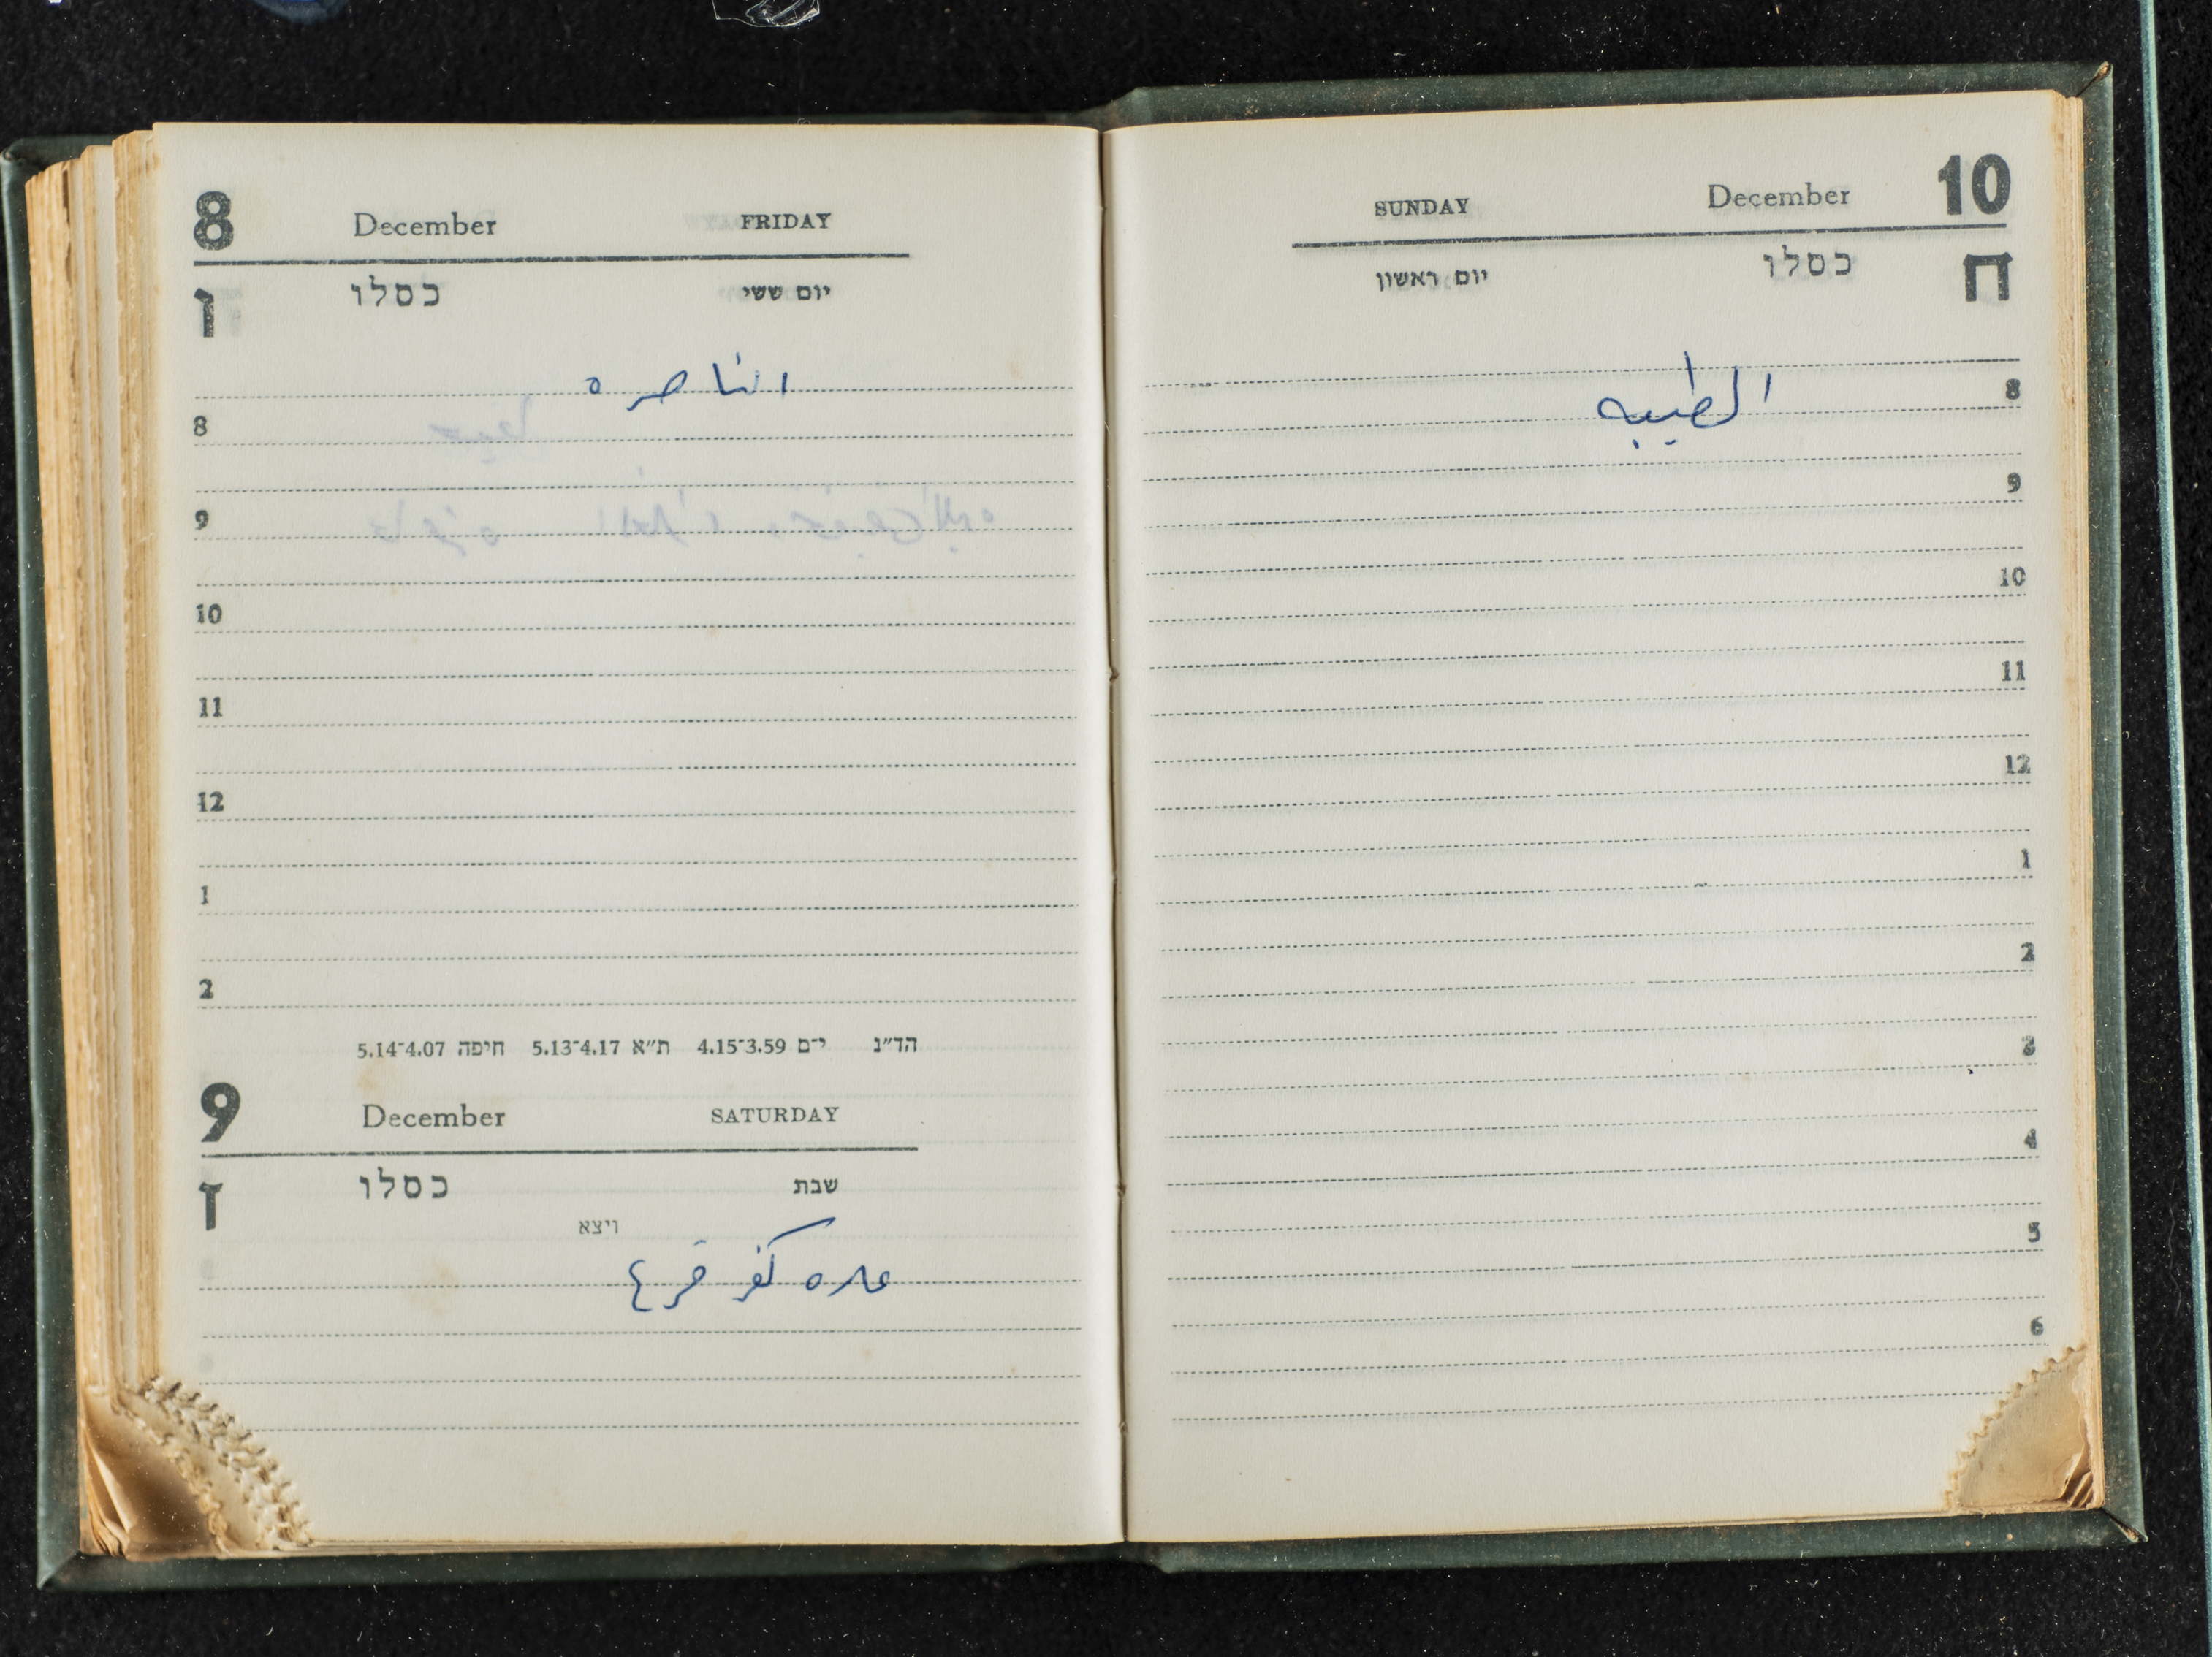 8 December FRIDAY
ו כסלו יום ששי
الناصره
8
9
10
11
12
1
2
הד״נ י־ם 3.59־4.15 ת״א 4.17־5.13 חיפה 4.07־5.14
9 December SATURDAY
ז כסלו שבת
ויצא
عاره كفر قرع
SUNDAY December 10
יום ראשון כסלו ח
الطيبه
8
9
10
11
12
1
2
3
4
5
6